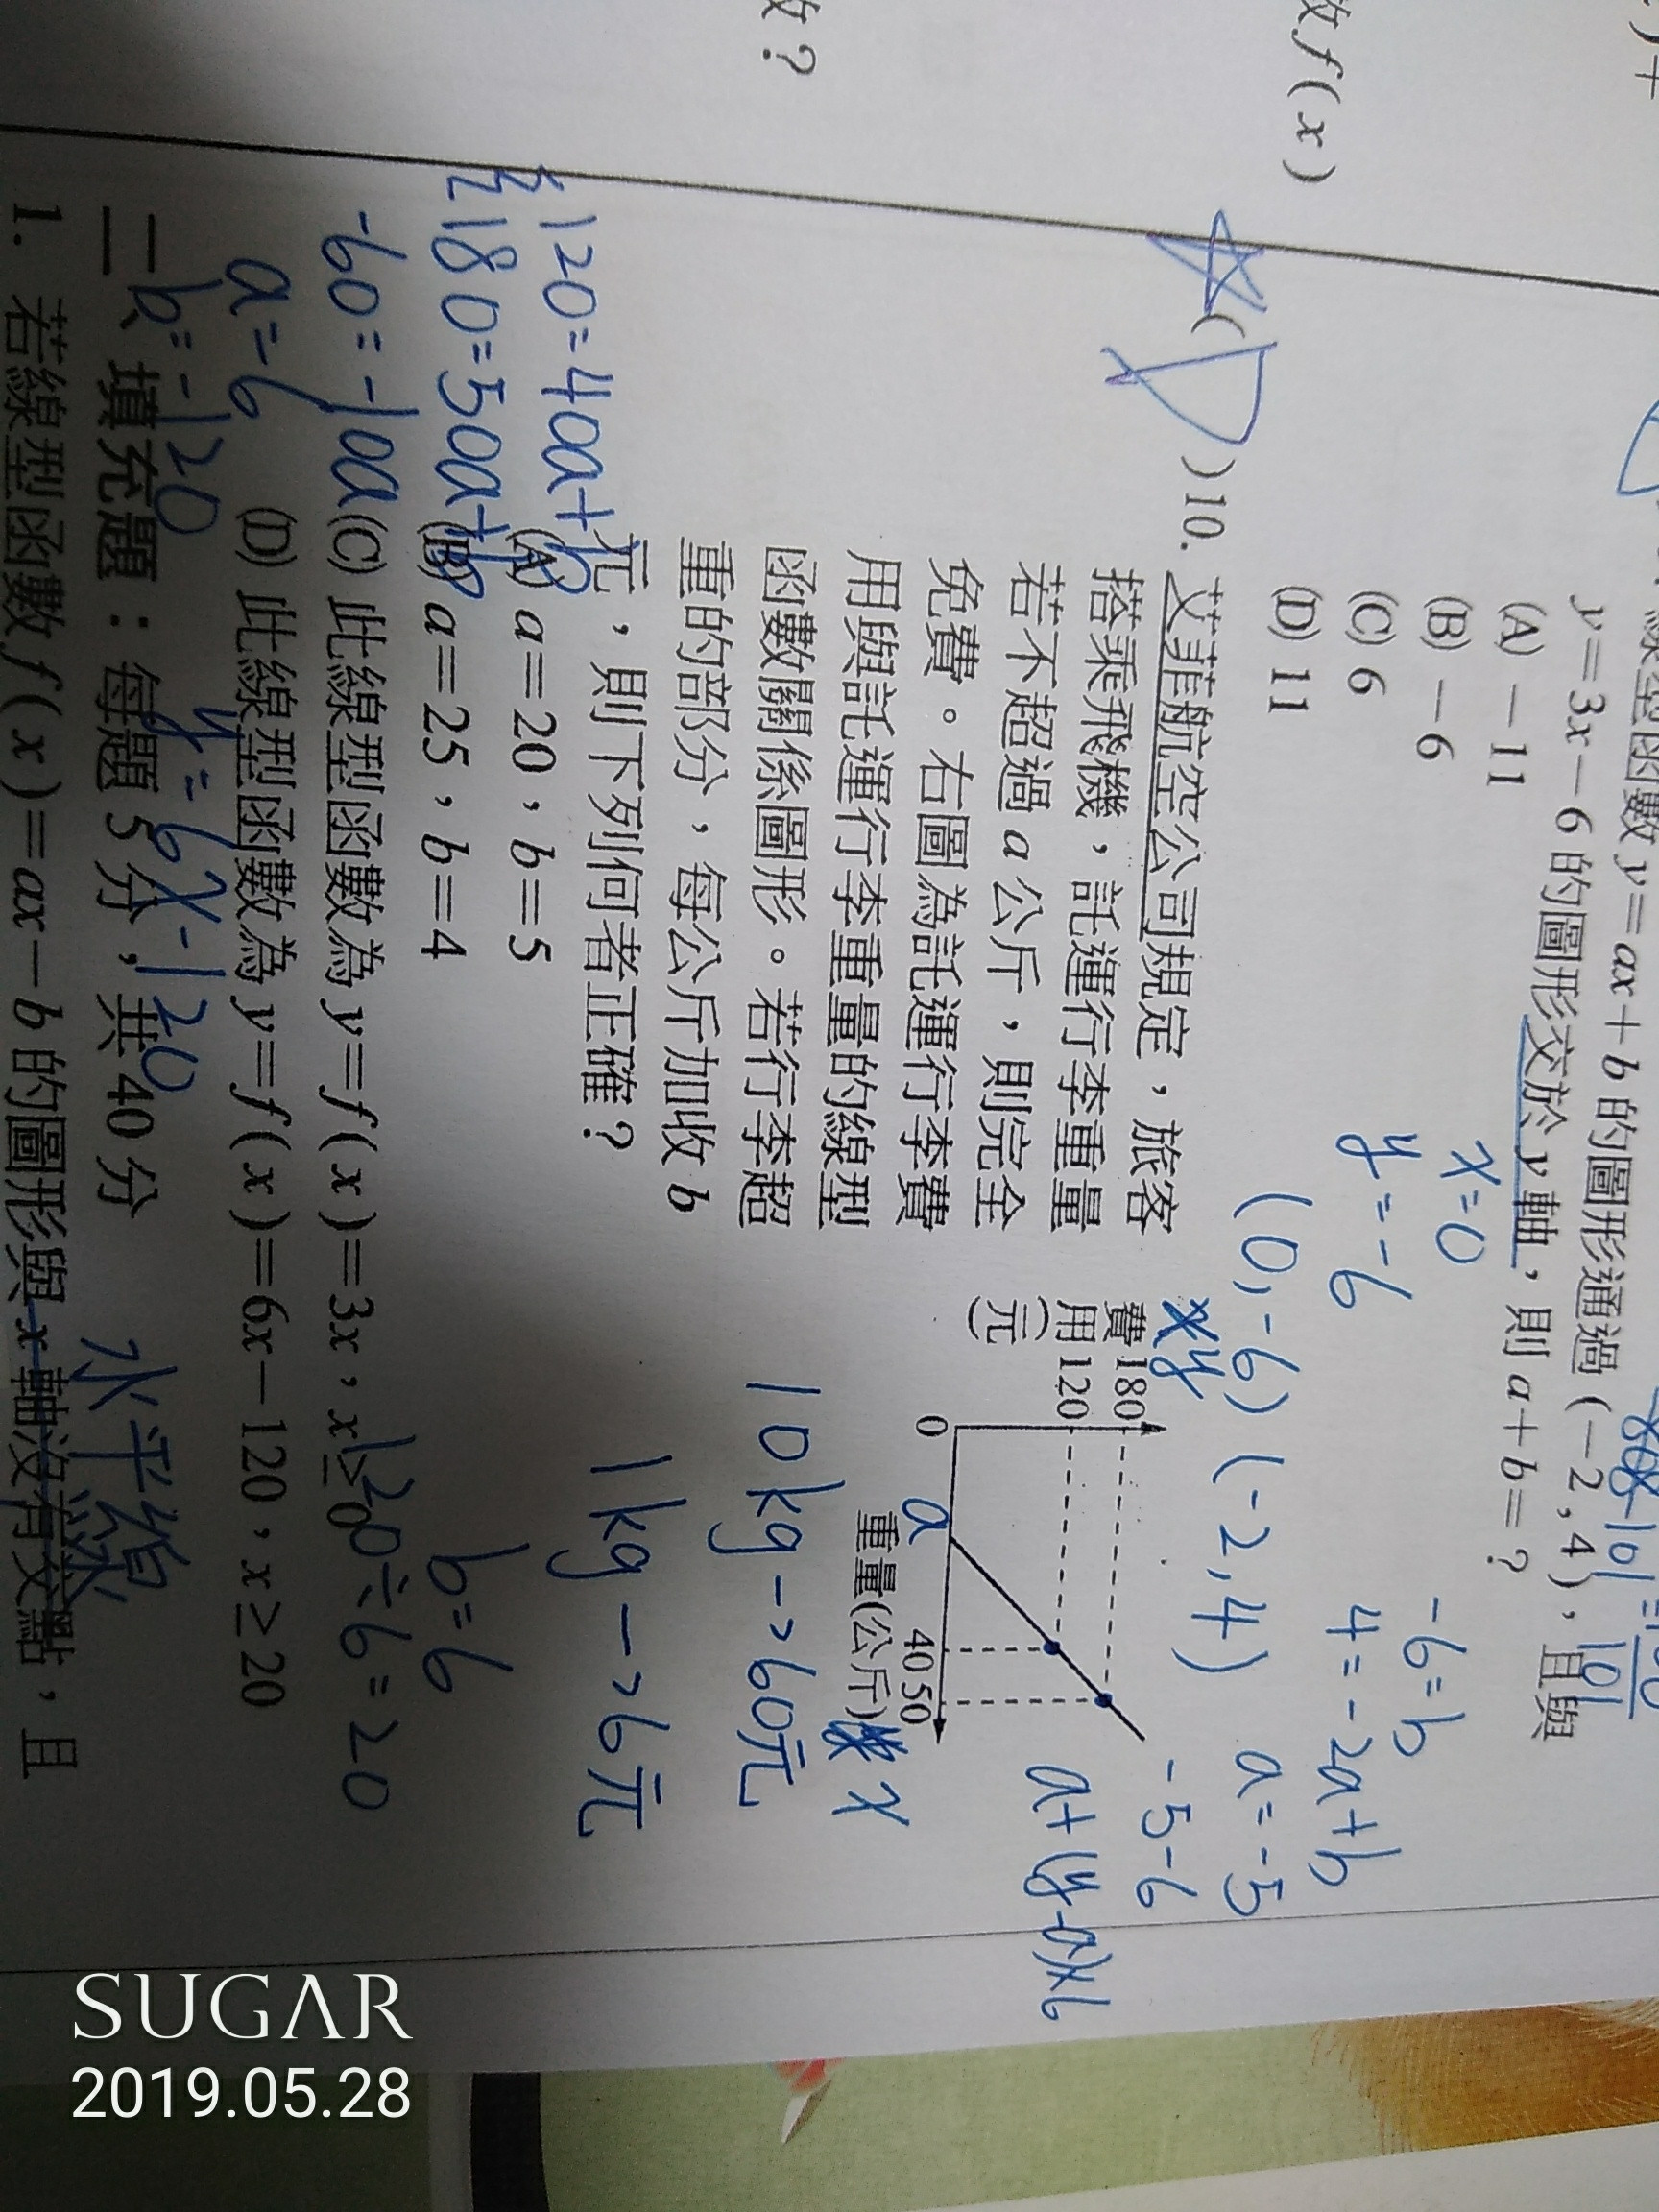 線型函數 y=ax+b 的圖形通過 (-2,4)，且與
y=3x-6 的圖形交於 y 軸，則 a+b=？
(A) -11
(B) -6
(C) 6
(D) 11
x=0
y=-6
(0,-6) (-2,4)
-6=b
4=-2a+b
a=-5
-5-6
數 f(x)
數？
(D)10. 艾菲航空公司規定，旅客
搭乘飛機，託運行李重量
若不超過 a 公斤，則完全
免費。右圖為託運行李費
用與託運行李重量的線型
函數關係圖形。若行李超
重的部分，每公斤加收 b
元，則下列何者正確？
(A) a=20，b=5
(B) a=25，b=4
(C) 此線型函數為 y=f(x)=3x，x≥0
(D) 此線型函數為 y=f(x)=6x-120，x≥20
費用(元)
y
180
120
0
a
40 50
重量(公斤)
x
a+(y-a)×6
10kg->60元
1kg->6元
b=6
120÷6=20
120=40a+b
180=50a+b
-60=-10a
a=6
b=-120
y=6x-120
二、填充題：每題 5 分，共 40 分
水平線
1. 若線型函數 f(x)=ax-b 的圖形與 x 軸沒有交點，且
SUGAR
2019.05.28